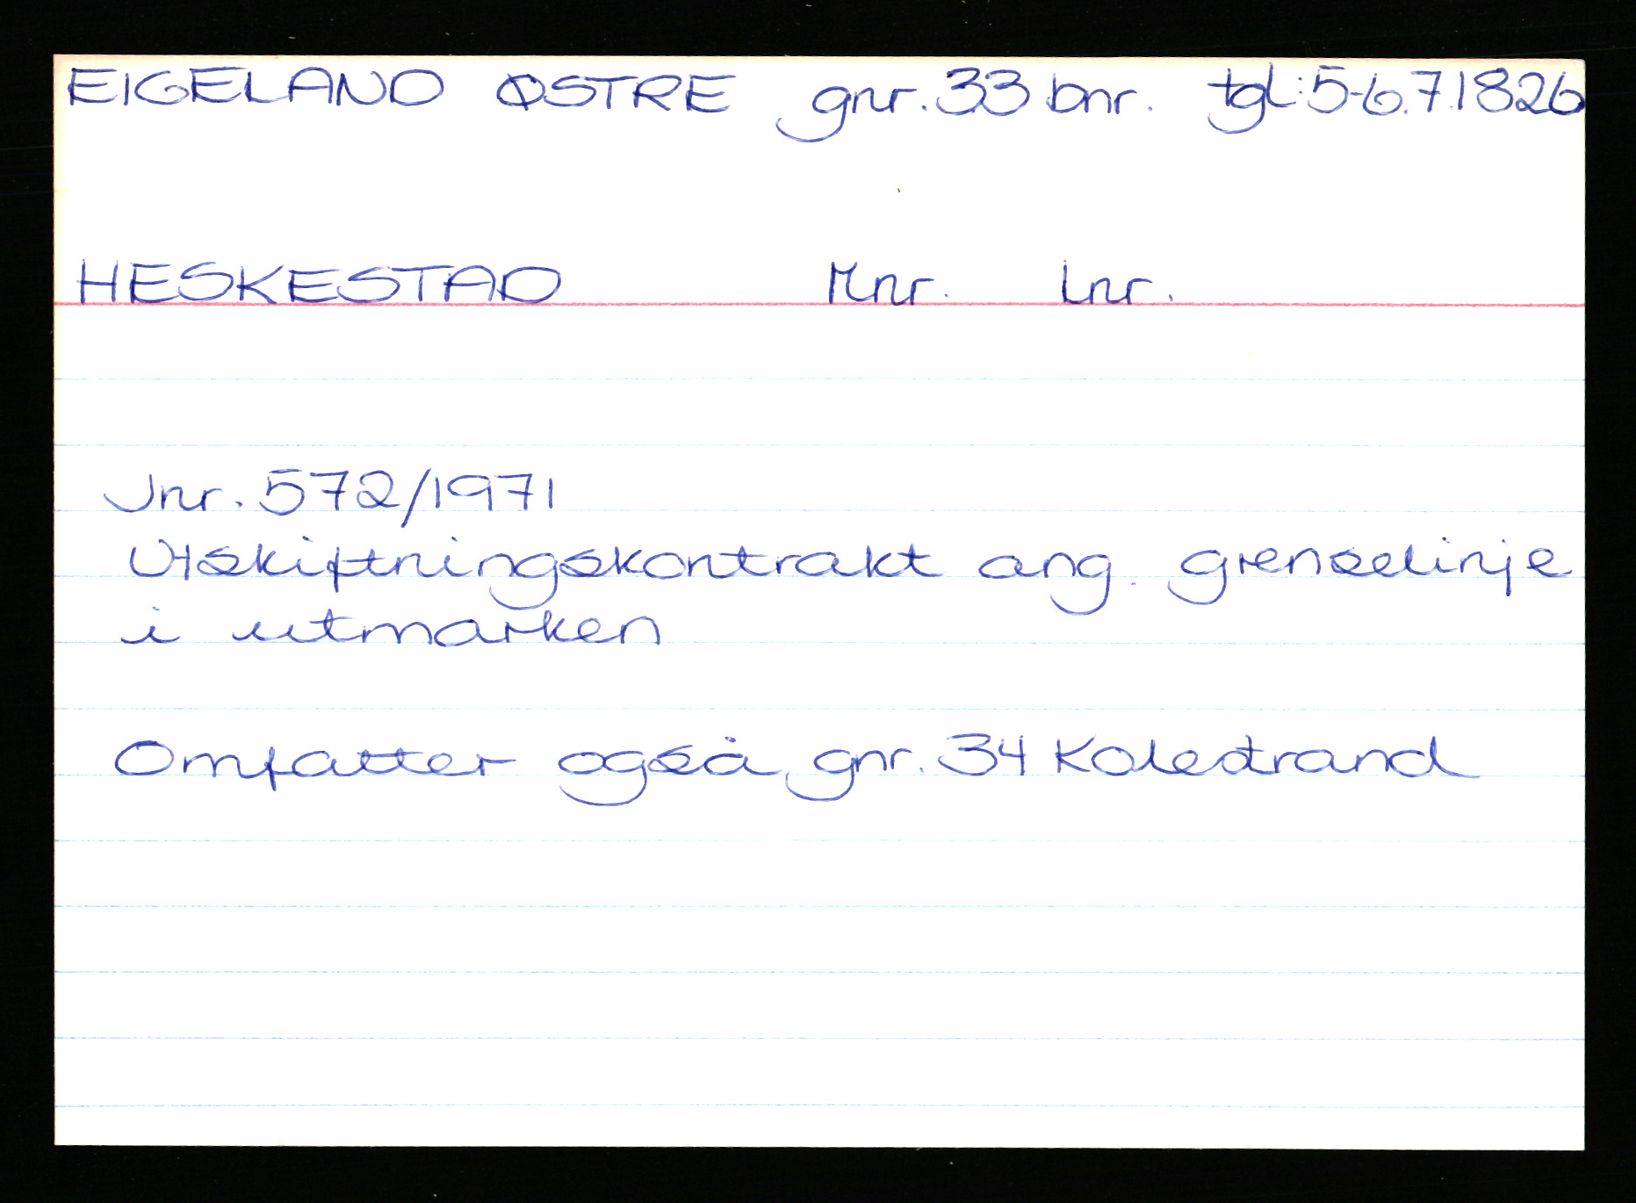 EIGELAND ØSTRE gnr. 33 bnr. tgl: 5-6.7.1826
HESKESTAD Mnr. Lnr.
Jnr. 572/1971
Utskiftningskontrakt ang. grenselinje
i utmarken
Omfatter også gnr. 34 Kolestrand